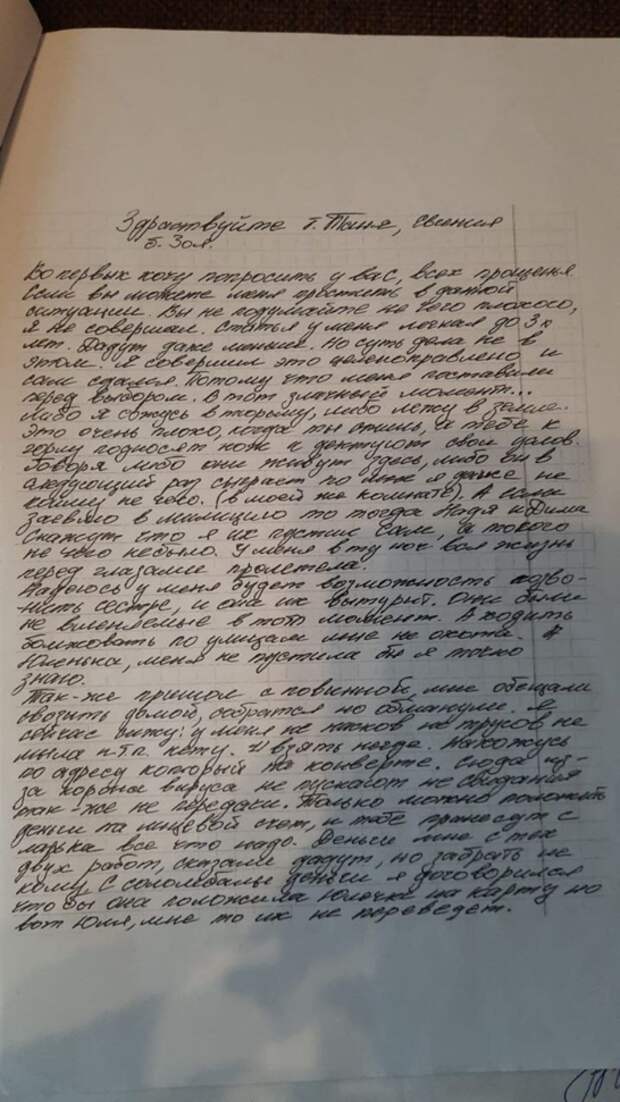 Здраствуйте т. Таня, Евгения
б. Зоя.
Во первых хочу попросить у вас, всех прощенья
Если вы можете меня простить в данной
ситуации. Вы не подумайте не чего плохого,
я не совершал. Статья у меня легкая до 3х
лет. Дадут даже меньше. Но суть дела не в
этом. Я совершил это целенаправлено и
сам сдался. Потому что меня поставили
перед выбором. В тот злачный момент...
либо я сажусь в тюрьму, либо лежу в земле.
Это очень плохо, когда ты спишь, а тебе к
горлу подносят нож и диктуют свои
говоря либо они живут здесь, либо он в
следующий раз сыграет по мне я даже не
пойму не чего. (в моей же комнате). А если
заевлю в милицию то тогда Надя и Дима
скажут что я их пустил сам, а такого
не чего небыло. У меня в ту ноч вся жизнь
перед глазами пролетела.
Надеюсь у меня будет возможность позво-
нить сестре, и она их вытурит. Они были
не вменяемые в тот момент. А ходить
бомжовать по улицам мне не охота.
Юленька, меня не пустила бы я точно
знаю.
Так-же пришол с повинной, мне обещали
свозить домой, собратся но обманули. Я
сейчас сижу: у меня не носков не трусов не
мыла и т.п. нету. И взять негде. Нахожусь
по адресу который на конверте. Сюда из-
за корона вируса не пускают не свидания
так-же не передачи. Только можно положить
деньги на лицевой счет, и тебе принесут с
ларька все что надо. Деньги мне с тех
двух работ, сказали дадут, но забрать не
кому. С соломбалы деньги я договорился
что бы она положила Юлечке на карту но
вот Юля, мне то их не переведет.